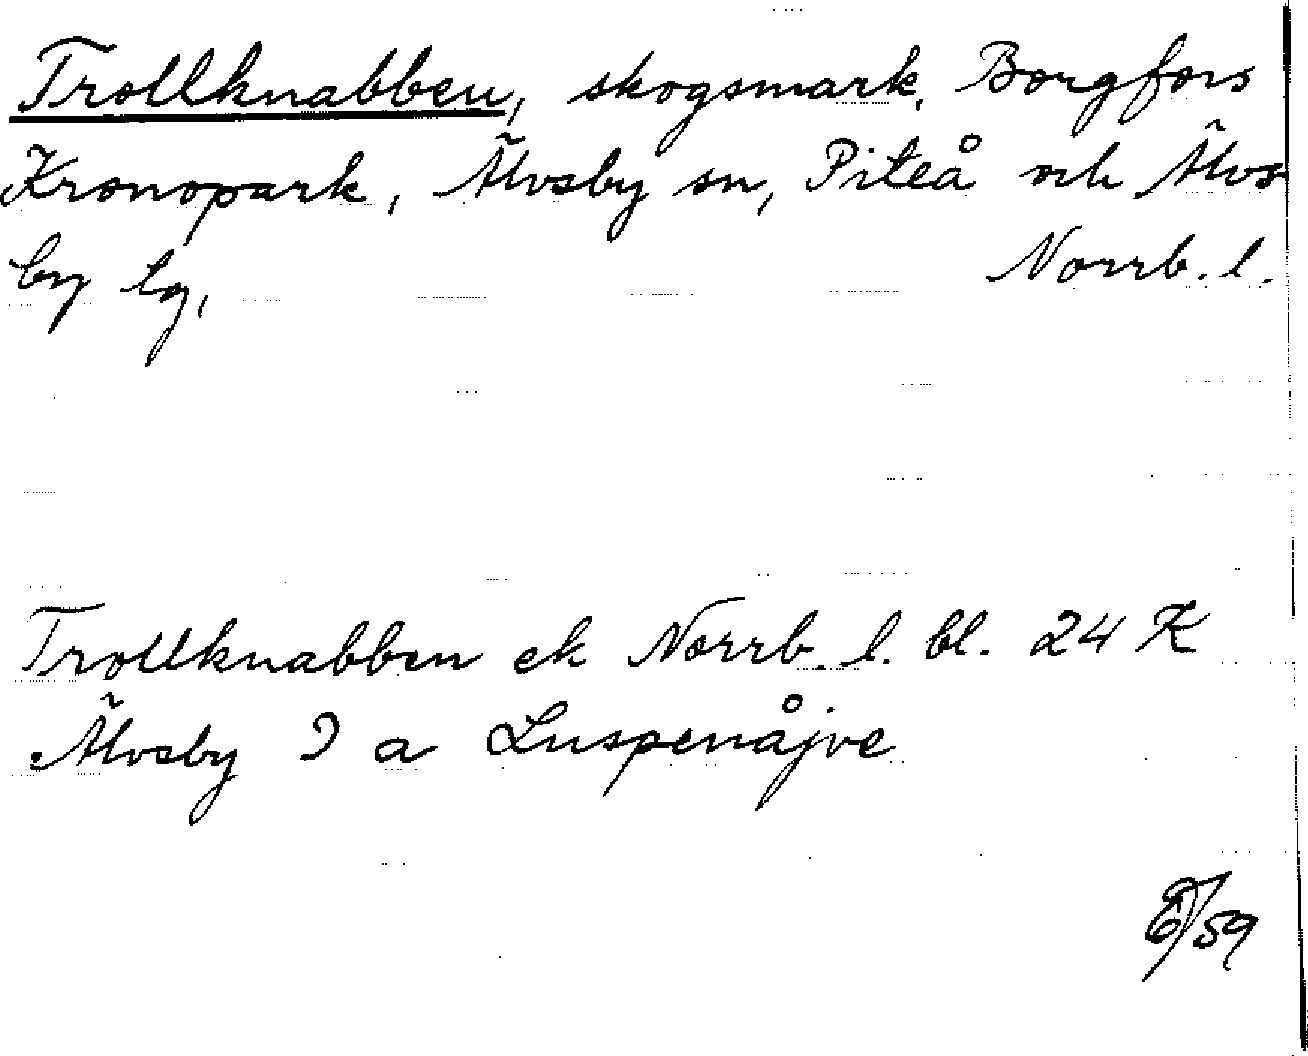 Trollknabben, skogsmark, Borgfors
Kronopark, Älvsby sn, Piteå och Älvs-
by lg, Norrb. l.
Trollknabben ek Norrb. l. bl. 24 K
Älvsby J a Luspenåjve
/59